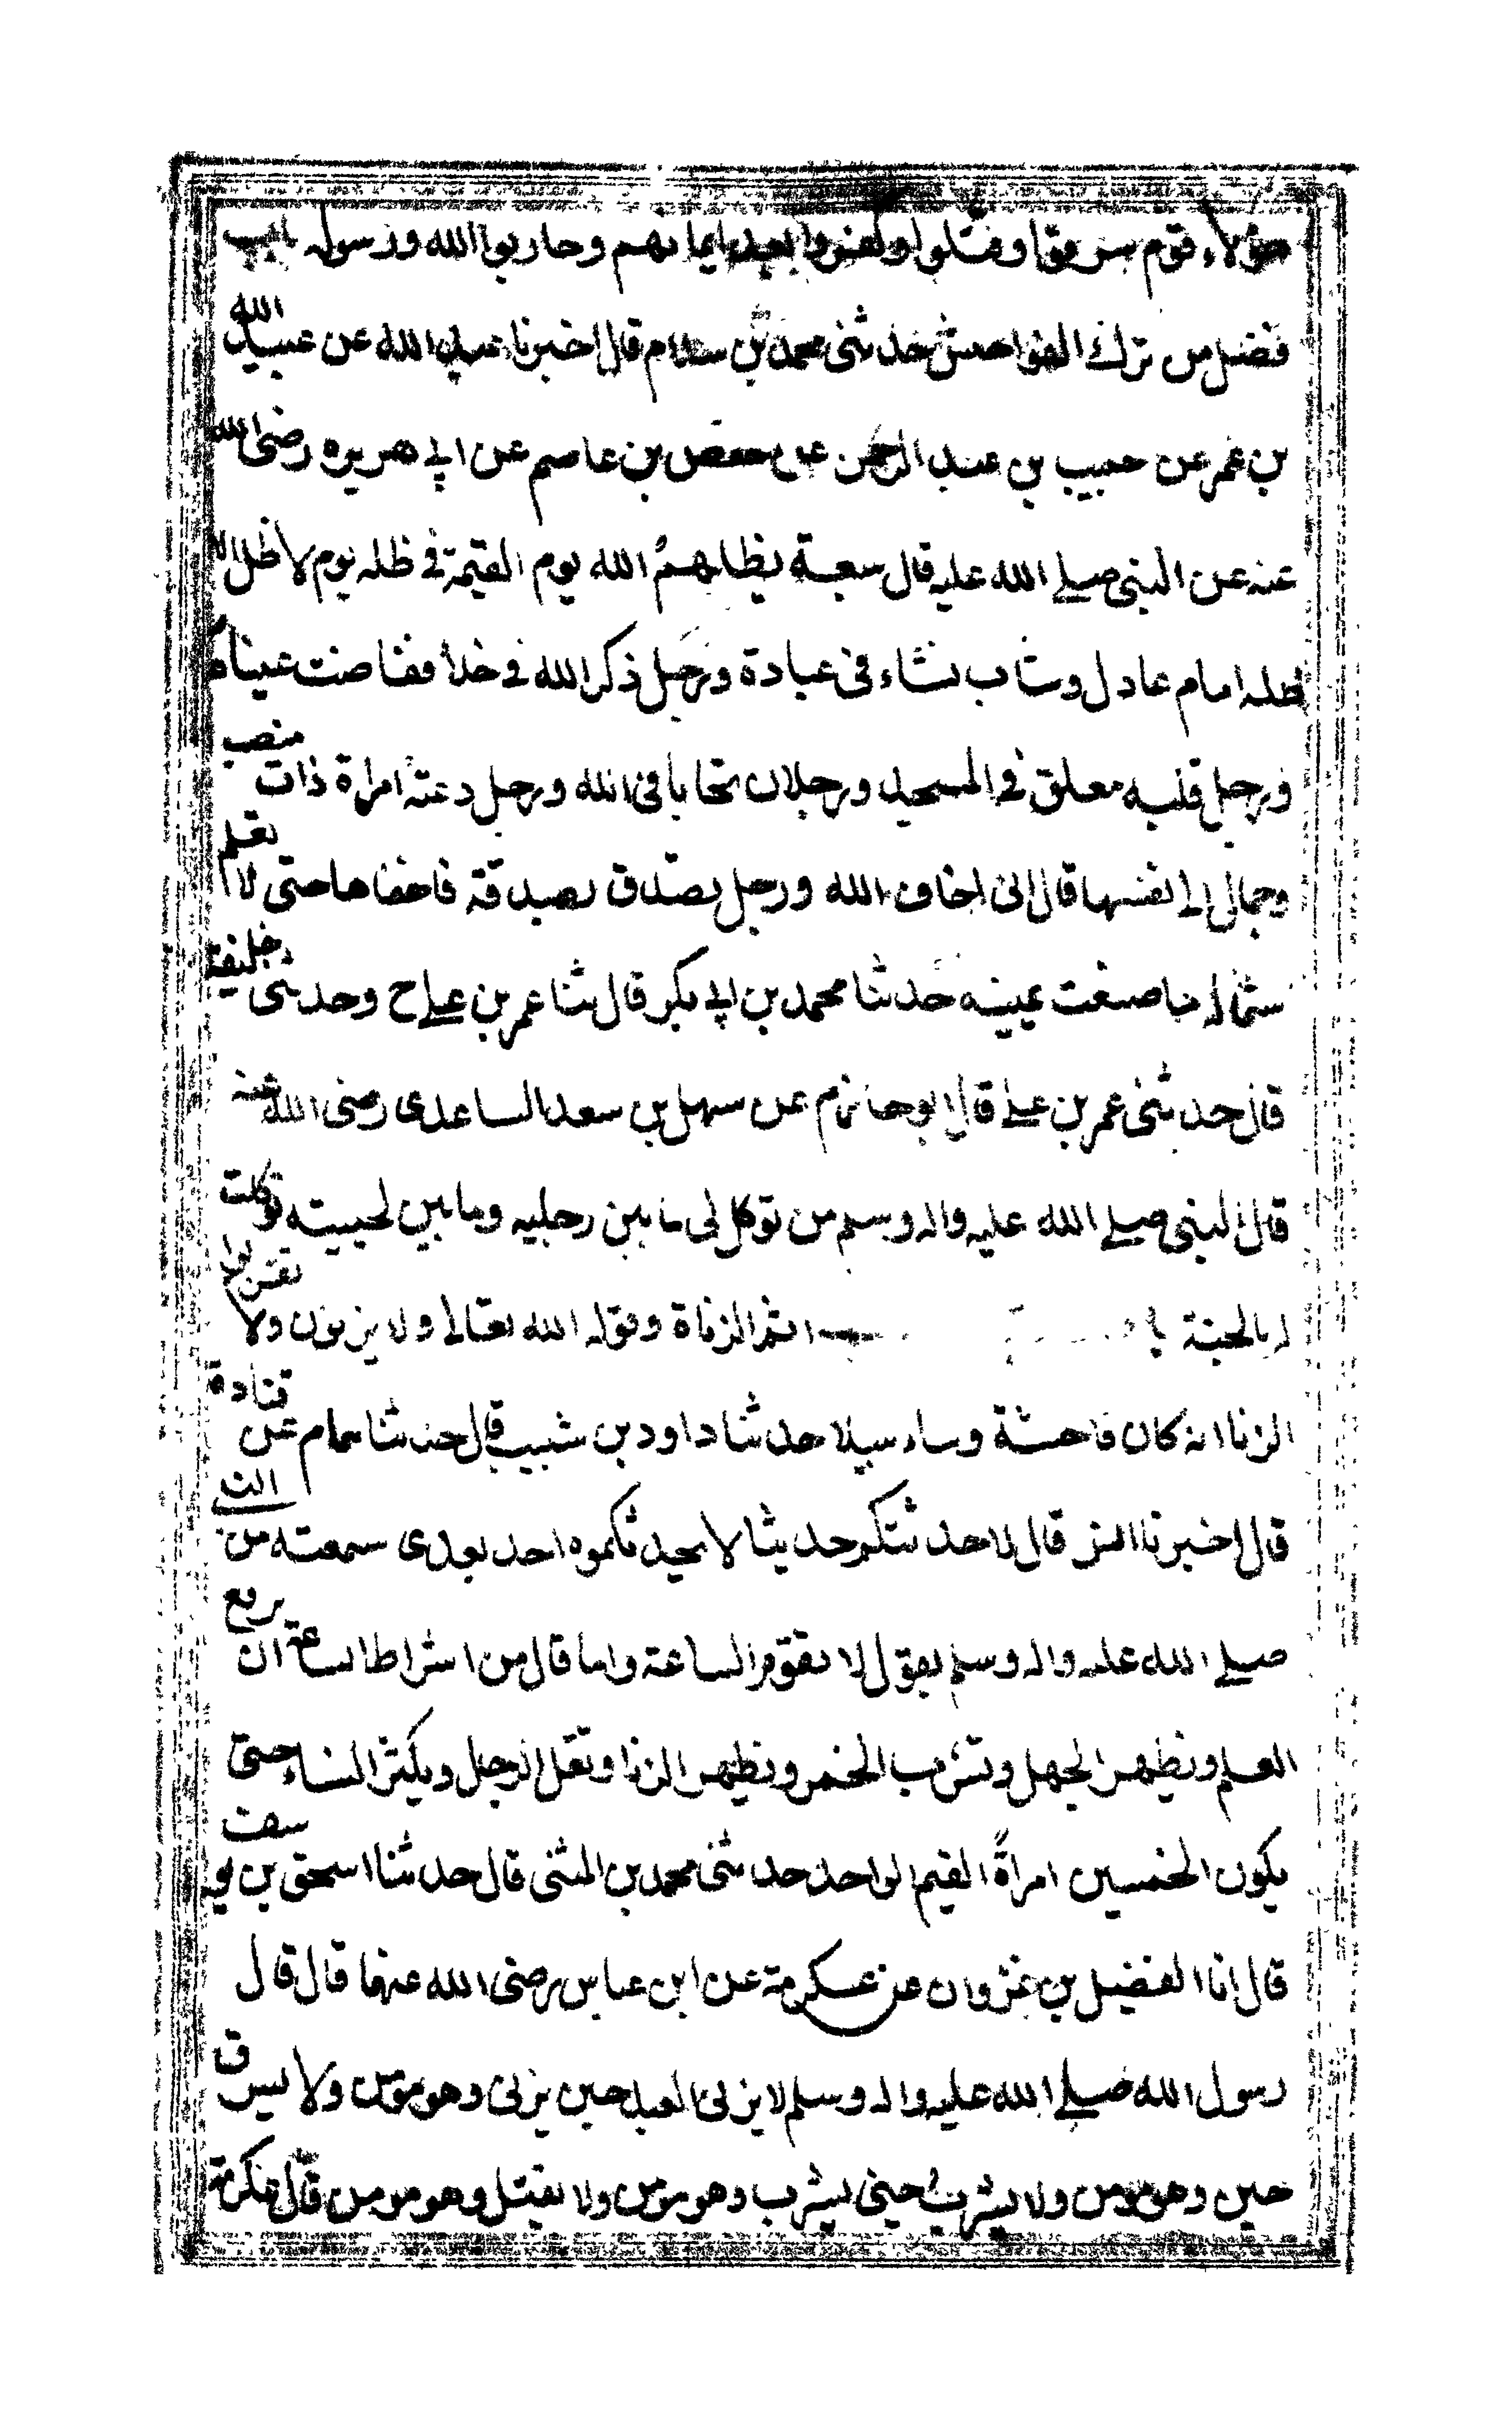 هؤلاء قوم سرقوا وقتلوا وكفروا بعد ايمانهم وحاربوا الله ورسوله باب
فضل من ترك الفواحش حدثنى محمد بن سلام قال اخبرنا عبد الله عن عبيد الله
بن عمر عن حبيب بن عبد الرحمن عن حفص بن عاصم عن ابي هريره رضى الله
عنه عن النبى صلى الله عليه قال سبعة يظلهم الله يوم القيمة في ظله يوم لا ظل الا
ظله امام عادل وشاب نشاء فى عبادة ورجل ذكر الله في خلا ففاضت عيناه
ورجل قلبه معلق في المسجد ورجلان تحابا فى الله ورجل دعته امراة ذات منصب
وجمال الى نفسها قال انى اخاف الله ورجل تصدق بصدقة فاخفاها حتى لا تعلم
شماله ما صنعت يمينه حدثنا محمد بن ابي بكر قال ثنا عمر بن على ح وحدثنى خليفة
قال حدثنى عمر بن على قال ابو حازم عن سهل بن سعد الساعدى رضى الله عنه
قال النبى صلى الله عليه واله وسلم من توكل لى ما بين رجليه وما بين لحييته توكلت
له بالجنة با ب اثم الزناة وقوله الله تعالى ولا يزنون ولا تقربوا
الزنا انه كان فاحشة وساء سبيلا حدثنا داود بن شبيب قال حدثنا همام عن قتادة
قال اخبرنا انس قال لاحدثنكم حديثا لا يحدثكموه احد بعدى سمعته من النبى
صلى الله عليه واله وسلم يقول لا تقوم الساعة واما قال من اشراط الساعة ان يرفع
العلم ويظهر الجهل وتشرب الخمر ويظهر الزنا وتقل الرجل ويكثر النساء حتى
يكون الخمسين امراة القيم الواحد حدثنى محمد بن المثنى قال حدثنا اسحق بن يوسف
قال انا الفضيل بن غزوان عن عكرمة عن ابن عباس رضى الله عنهما قال قال
رسول الله صلى الله عليه واله وسلم لا يزنى العبد حين يزنى وهو مؤمن ولا يسرق
حين وهو مومن ولا يشرب حينى يشرب وهو مومن ولا يقتل وهو مومن قال عكرمة